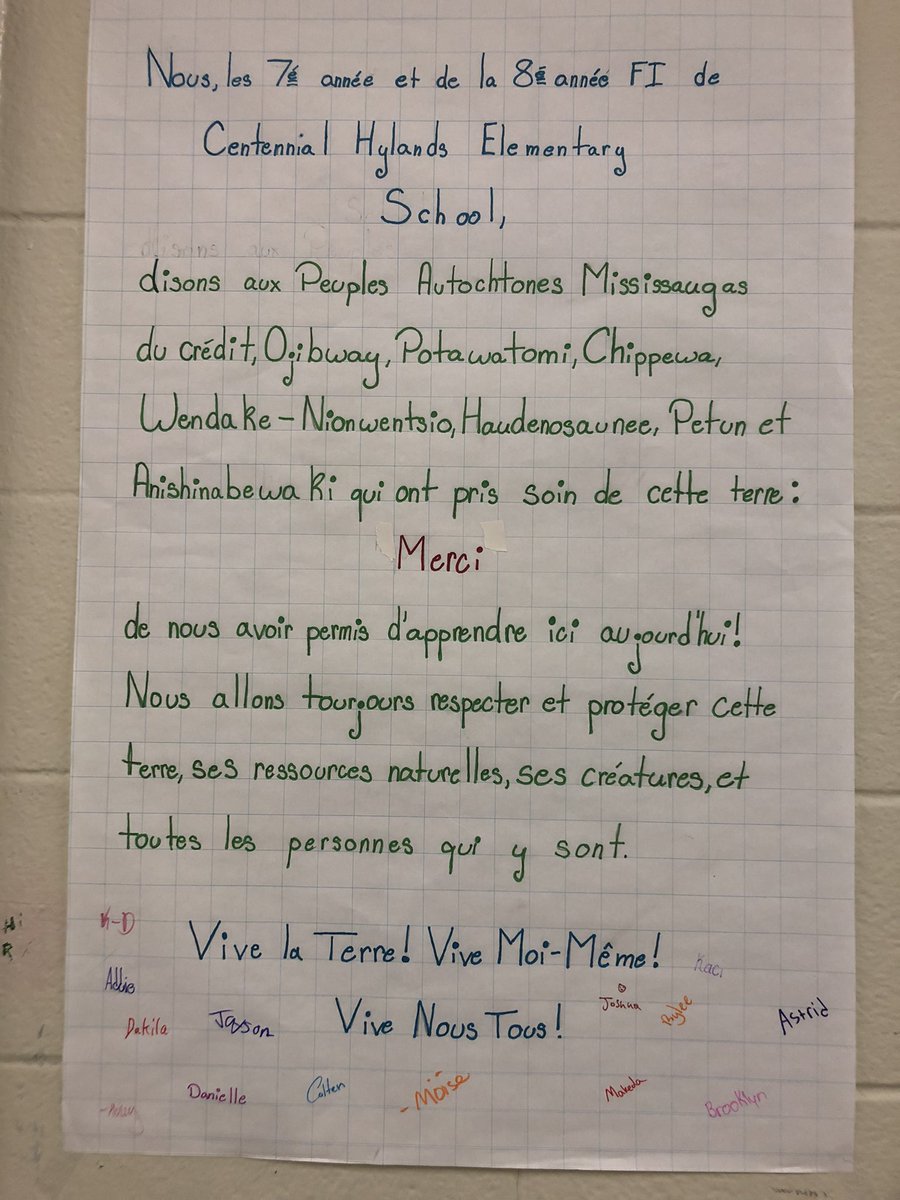 Nous, les 7é année et de la 8é année FI de
Centennial Hylands Elementary
School,
disons aux Peuples Autochtones Mississaugas
du crédit, Ojibway, Potawatomi, Chippewa,
Wendake-Nionwentsio, Haudenosaunee, Petun et
Anishinabewaki qui ont pris soin de cette terre:
Merci
de nous avoir permis d'apprendre ici aujourd'hui!
Nous allons tourjours respecter et protéger cette
terre, ses ressources naturelles, ses créatures, et
toutes les personnes qui y sont.
K-D
Vive la Terre! Vive Moi-Même!
Kaci
Addie
Dakila
Jayson
Vive Nous Tous!
Joshua
Rylee
Astrid
Danielle
Colten
-Moïse
Makeda
Brooklyn